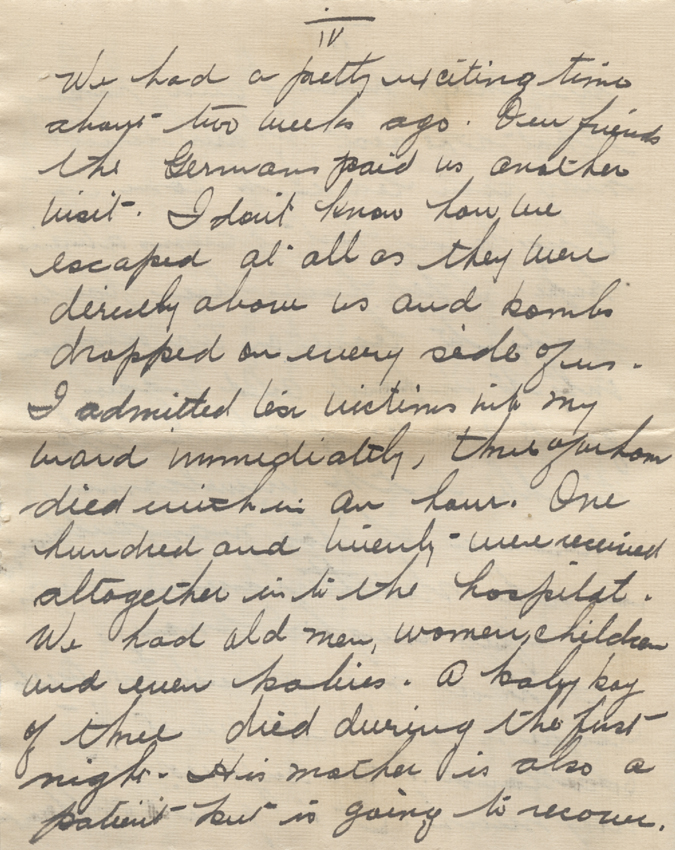 IV
We had a pretty exciting time
about two weeks ago. Our friends
the Germans paid us another
visit. I don't know how we
escaped at all as they were
directly above us and bombs
dropped on every side of us.
I admitted ten victims into my
ward immediately, three of whom
died within an hour. One
hundred and twenty were received
altogether into the hospital.
We had old men, women, children
and even babies. A baby boy
of three died during the first
night. His mother is also a
patient but is going to recover.